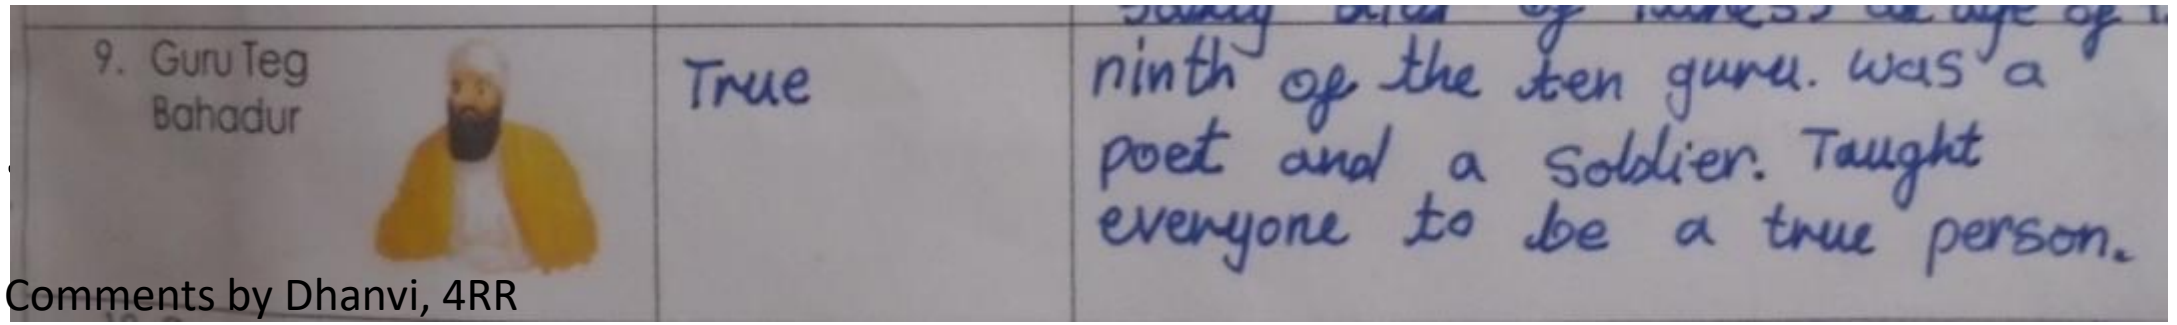 9. Guru Teg
Bahadur
True
of age of
ninth of the ten guru. was a
poet and a soldier. Taught
everyone to be a true person.
Comments by Dhanvi, 4RR